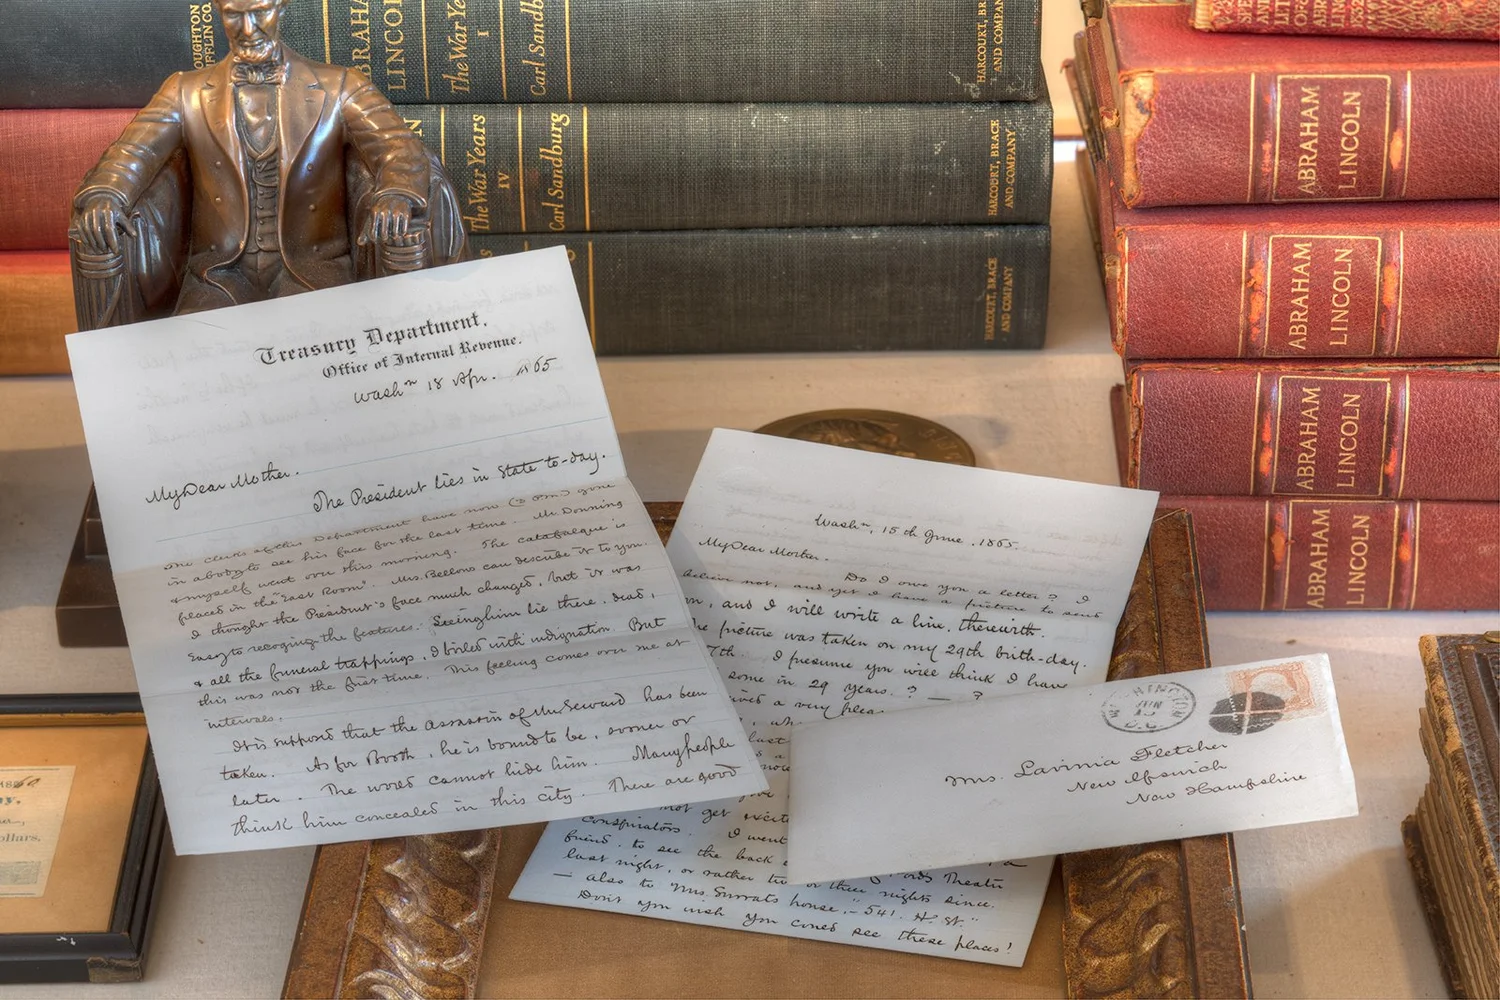 HOUGHTON
MIFFLIN CO.
ABRAHAM
LINCOLN
The War Years
I
Carl Sandburg
HARCOURT, BRACE
AND COMPANY
The War Years
IV
Carl Sandburg
HARCOURT, BRACE
AND COMPANY
HARCOURT, BRACE
AND COMPANY
ABRAHAM
LINCOLN
ABRAHAM
LINCOLN
ABRAHAM
LINCOLN
ABRAHAM
LINCOLN
Treasury Department,
Office of Internal Revenue.
Washn 18 Apr. 1865
My Dear Mother.
The President lies in State to-day.
The clerks of this Department have now (3 P.M.) gone
in a body to see his face for the last time. Mr. Donning
& myself went over this morning. The catafalque is
placed in the "East Room". Mrs. Bellows can describe it to you.
I thought the President's face much changed, but it was
easy to recognize the features. Seeing him lie there, dead,
& all the funeral trappings, I boiled with indignation. But
this was not the first time. This feeling comes over me at
intervals.
It is supposed that the assassin of Mr. Seward has been
taken. As for Booth, he is bound to be, sooner or
later. The world cannot hide him. Many people
think him concealed in this city. There are good
Washn, 15th June, 1865.
My Dear Mother.
Do I owe you a letter? I
believe not, and yet I have a picture to send
and I will write a line, therewith.
picture was taken on my 29th birth-day.
7th. I presume you will think I have
some in 29 years. ? — ?
a very pleas
last
not get excite
Conspirators. I went
friend, to see the back Theatre
last night, or rather two or three nights since.
— also to "Mrs. Surrats house, - 541. H. St."
Don't you wish you could see these places!
WASHINGTON
JUN
D.C.
Mrs. Lavinia Fletcher
New Ipswich
New Hampshire
ollars.